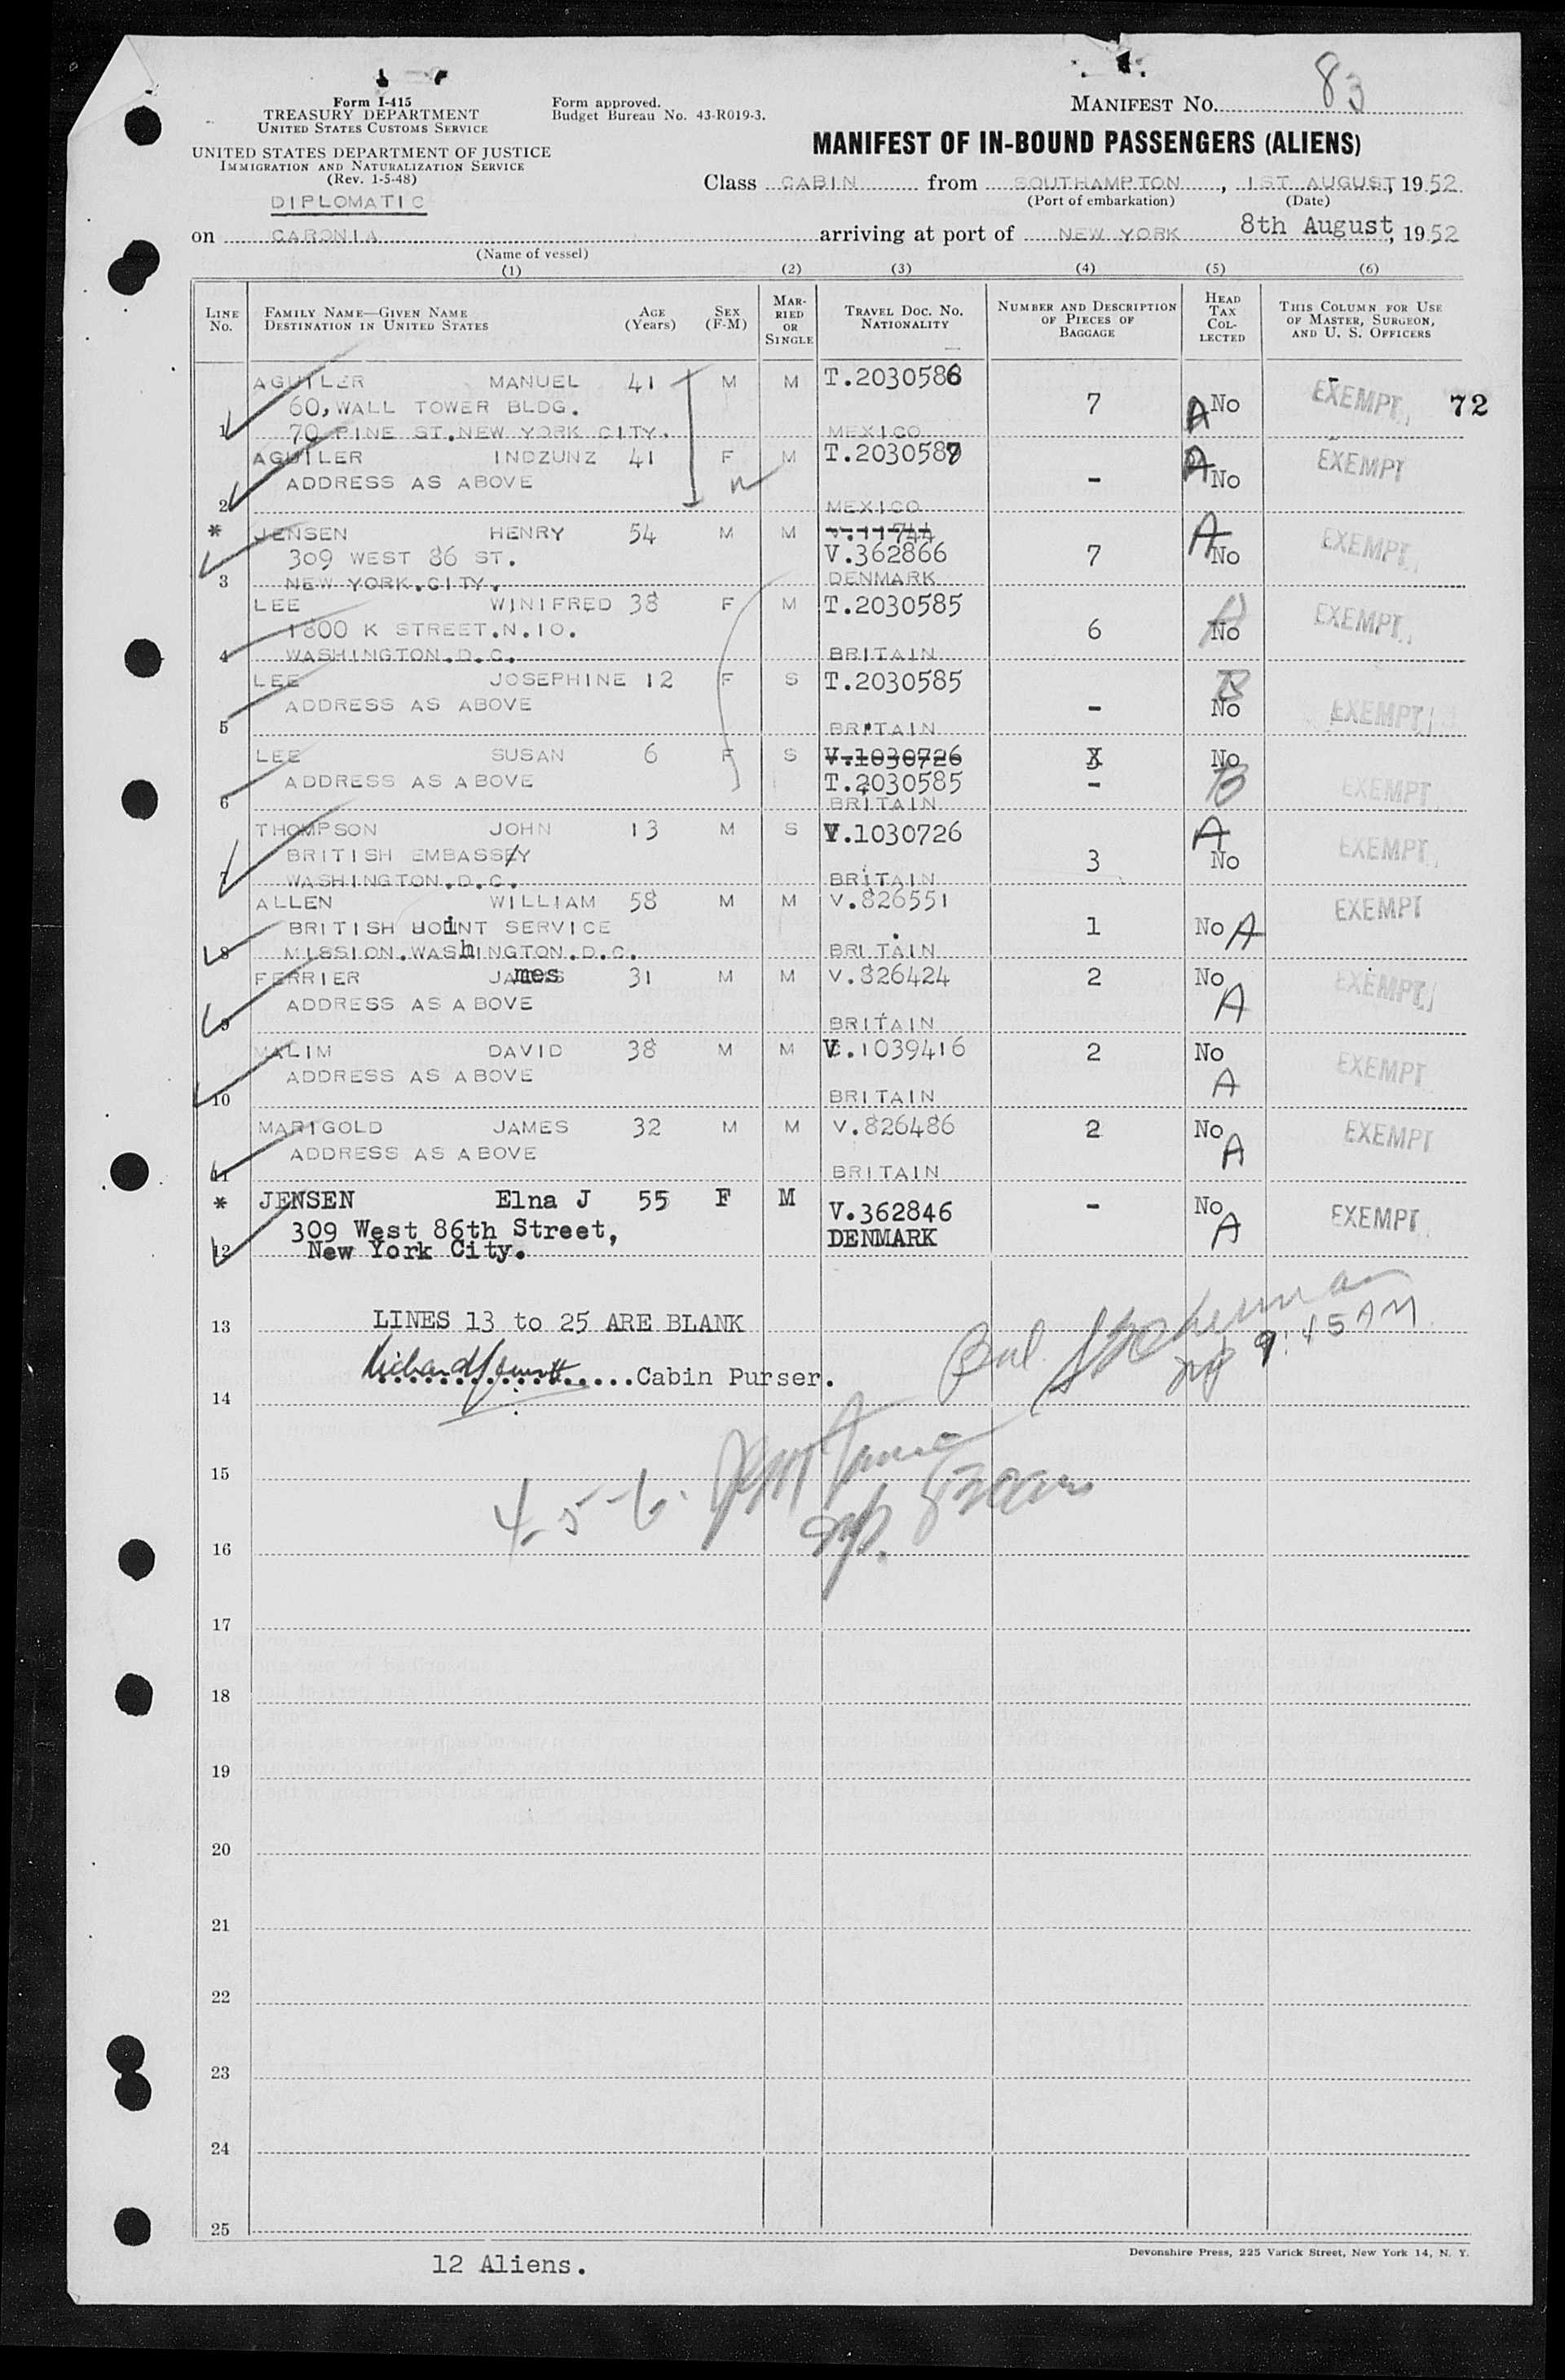 83
Form I-415
TREASURY DEPARTMENT
UNITED STATES CUSTOMS SERVICE
Form approved.
Budget Bureau No. 43-R019-3.
MANIFEST NO.
UNITED STATES DEPARTMENT OF JUSTICE
IMMIGRATION AND NATURALIZATION SERVICE
(Rev. 1-5-48)
MANIFEST OF IN-BOUND PASSENGERS (ALIENS)
Class CABIN from SOUTHAMPTON, 1ST AUGUST, 1952
(Port of embarkation) (Date)
DIPLOMATIC
on CARONIA arriving at port of NEW YORK 8th August, 1952
(Name of vessel)
(1) (2) (3) (4) (5) (6)
LINE No. FAMILY NAME—GIVEN NAME DESTINATION IN UNITED STATES AGE (Years) SEX (F-M) MARRIED OR SINGLE TRAVEL DOC. NO. NATIONALITY NUMBER AND DESCRIPTION OF PIECES OF BAGGAGE HEAD TAX COLLECTED THIS COLUMN FOR USE OF MASTER, SURGEON, AND U. S. OFFICERS
AGUILER MANUEL 41 M M T.2030586
60, WALL TOWER BLDG. 7 A No EXEMPT 72
1 70 PINE ST.NEW YORK CITY. MEXICO
AGUILER INDZUNZ 41 F M T.2030587
ADDRESS AS ABOVE - A No EXEMPT
2 MEXICO
* JENSEN HENRY 54 M M V.11744
309 WEST 86 ST. V.362866 7 A No EXEMPT
3 NEW YORK.CITY. DENMARK
LEE WINIFRED 38 F M T.2030585
1800 K STREET.N.10. 6 A No EXEMPT
4 WASHINGTON.D.C. BRITAIN
LEE JOSEPHINE 12 F S T.2030585
ADDRESS AS ABOVE - B No EXEMPT
5 BRITAIN
LEE SUSAN 6 F S V.1030726 No
ADDRESS AS ABOVE T.2030585 - B EXEMPT
6 BRITAIN
THOMPSON JOHN 13 M S V.1030726 A
BRITISH EMBASSEY 3 No EXEMPT
7 WASHINGTON.D.C. BRITAIN
ALLEN WILLIAM 58 M M V.826551 EXEMPT
BRITISH JOINT SERVICE 1 No A
8 MISSION.WASHINGTON.D.C. BRITAIN
FERRIER JAMES 31 M M V.826424 2 No EXEMPT
ADDRESS AS ABOVE A
9 BRITAIN
MALIM DAVID 38 M M V.1039416 2 No EXEMPT
ADDRESS AS ABOVE A
10 BRITAIN
MARIGOLD JAMES 32 M M V.826486 2 No EXEMPT
ADDRESS AS ABOVE A
11 BRITAIN
* JENSEN Elna J 55 F M V.362846 - No EXEMPT
309 West 86th Street, DENMARK A
12 New York City.
13 LINES 13 to 25 ARE BLANK
9:45 AM
.....Cabin Purser.
14
15
4-5-6.
16
17
18
19
20
21
22
23
24
25
12 Aliens.
Devonshire Press, 225 Varick Street, New York 14, N. Y.